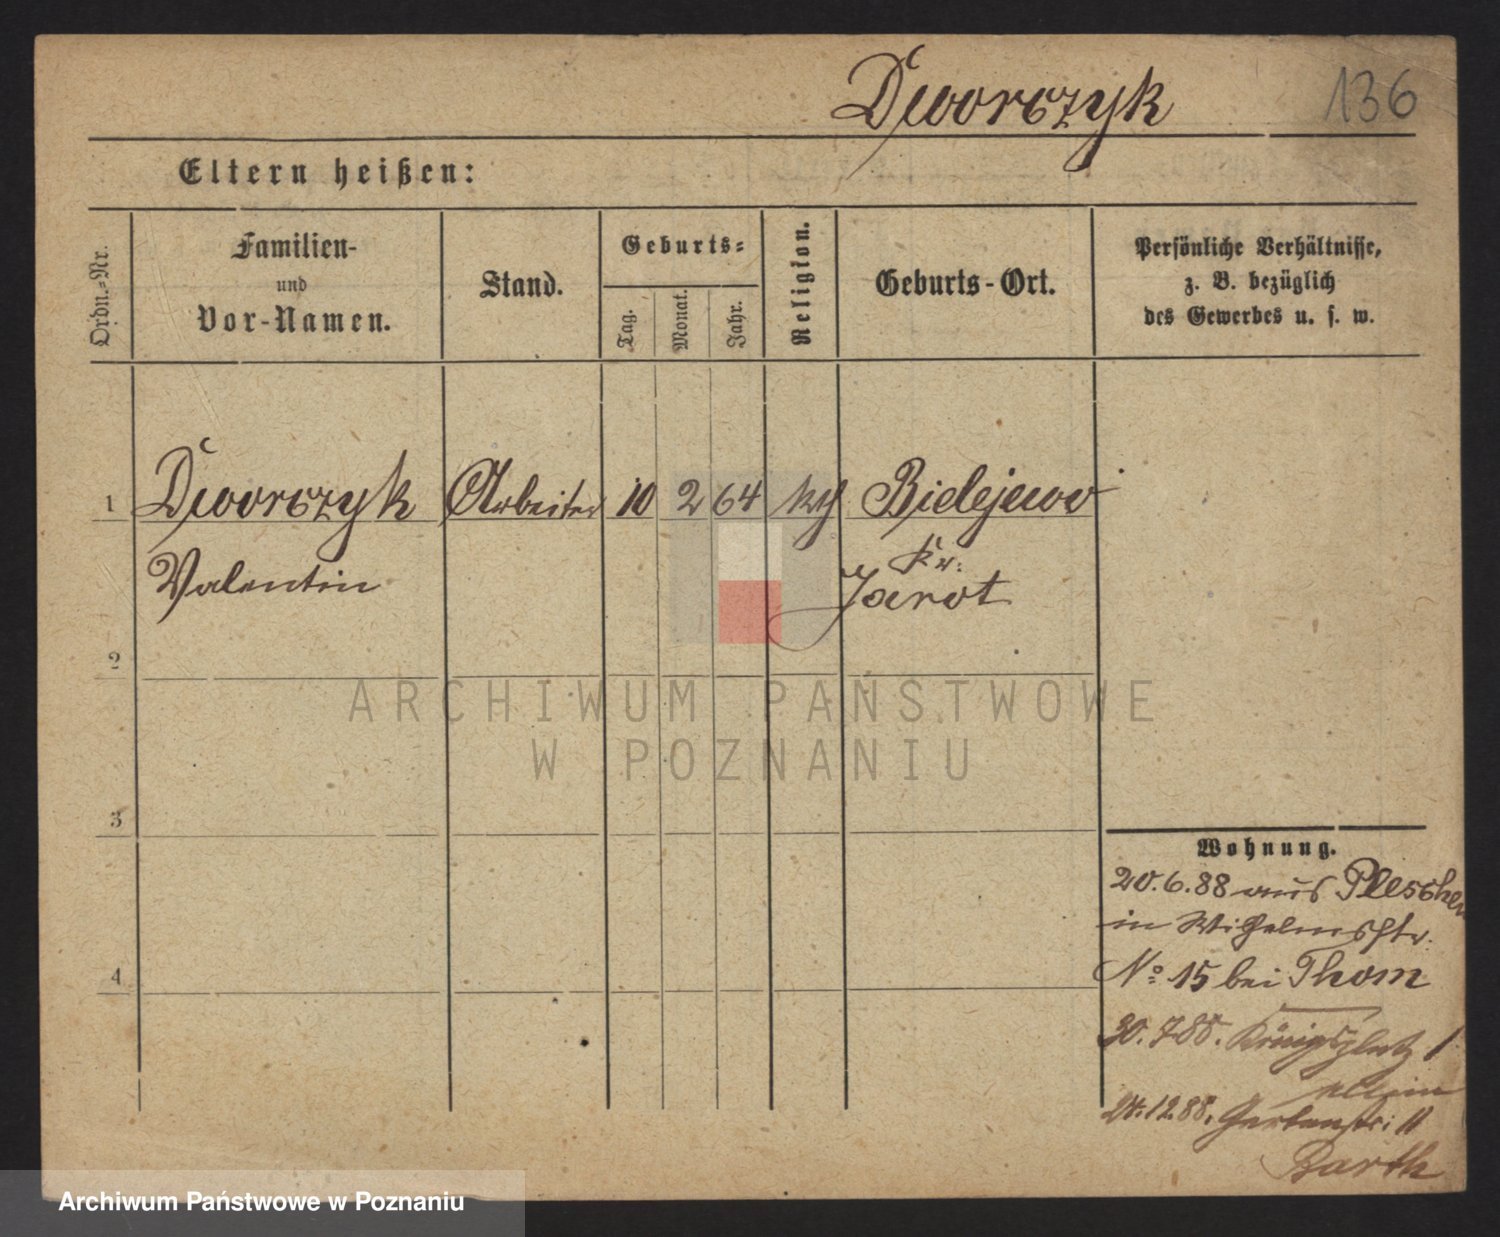 Dworczyk
136
Eltern heißen:
Ordn.-Nr.
Familien-
und
Vor-Namen.
Stand.
Geburts-
Tag.
Monat.
Jahr.
Religion.
Geburts-Ort.
Persönliche Verhältnisse,
z. B. bezüglich
des Gewerbes u. s. w.
1 Dworczyk Arbeiter 10 2 64 kth Bielejewo
Kr.
Valentin Jarot
2
ARCHIWUM PAŃSTWOWE
W POZNANIU
3
Wohnung.
20.6.88 aus Pleschen
in Wilhelmstr.
No 15 bei Thom
4
30.7 88. Königsplatz 1
allein
24.12.88. Gartenstr: 11
Barth
Archiwum Państwowe w Poznaniu